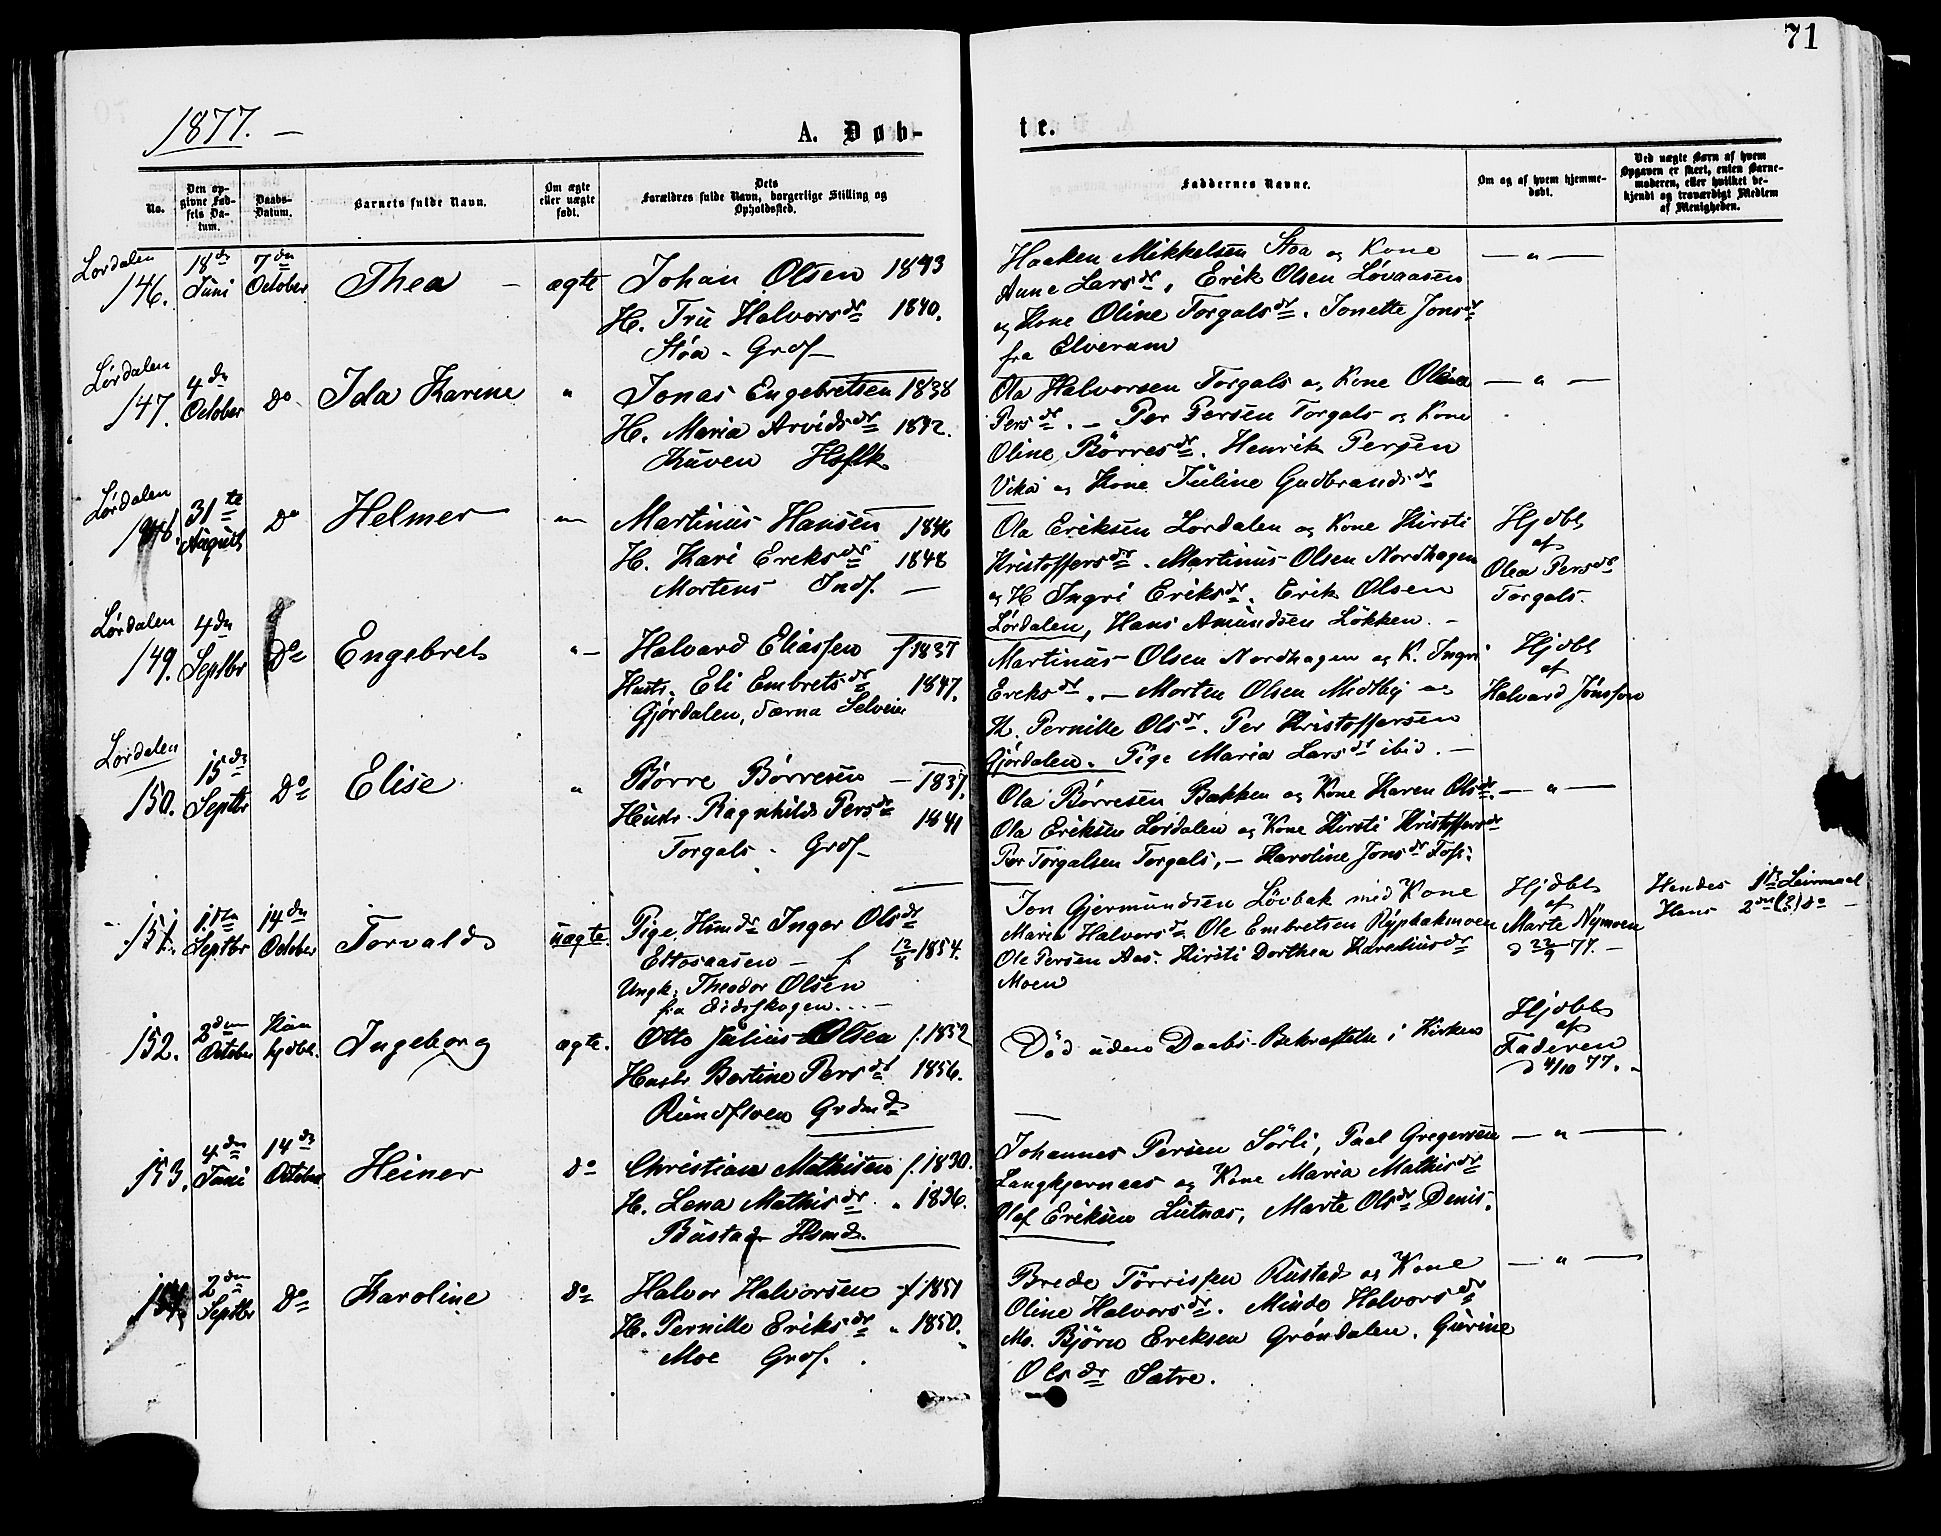 71
1877. —
A. Døb-
te.
No.
Den op-
givne Fød-
sels Da-
tum.
Daabs-
Datum.
Barnets fulde Navn.
Om ægte
eller uægte
født.
Dets
Forældres fulde Navn, borgerlige Stilling og
Opholdssted.
Faddernes Navne.
Om og af hvem hjemme-
døbt.
Ved uægte Børn af hvem
Opgaven er skeet, enten Barne-
moderen, eller hvilket be-
kjendt og troværdigt Medlem
af Menigheden.
Lørdalen
146.
18de
Juni
7de
October
Thea —
ægte
Johan Olsen 1843
H. Tru Halvorsdr 1840.
Støa - Grdf
Haaken Mikkelsen Støa og Kone
Anne Larsdr, Erik Olsen Løvaasen
og Kone Oline Torgalsdr. Jonette Jonsdr
fra Elverum
— „ —
Lørdalen
147.
4de
October
Do
Ida Karine
„
Jonas Engebretsen 1838
H. Maria Arvidsdr 1842.
Kuven Hsflk
Ola Halvorsen Torgals og Kone Olea
Persdr. — Per Persen Torgals og Kone
Oline Børresdr. Henrik Persen
Vika og Kone Juline Gudbrandsdr
— „ —
Lørdalen
148.
31te
August
Do
Helmer
„
Martinus Hansen 1846
H. Kari Ereksdr 1848
Mortens Indf. —
Ola Eriksen Lørdalen og Kone Kirsti
Kristoffersdr. Martinus Olsen Nordhagen
og H Ingri Eriksdr. Erik Olsen
Lørdalen, Hans Amundsen Løkken. —
Hjdbt
af
Olea Persdr
Torgals.
Lørdalen
149.
4de
Septbr
Do
Engebret
„ —
Halvard Eliassen f 1837
Hustr. Eli Embretsdr 1847.
Gjørdalen, Særna
Martinus Olsen Nordhagen og K. Ingri
Ereksdr. — Morten Olsen Midtby og
K. Pernille Olsdr. Per Kristoffersen
Gjørdalen. Pige Maria Larsdr ibid. —
Hjdbt
af
Halvard Jonsson
Lørdalen
150.
15de
Septbr
Do
Elise
„
Børre Børresen — 1837.
Hustr. Ragnhild Persdr 1841
Torgals - Grdf
Ola Børresen Bakken og Kone Karen Olsdr.
Ola Eriksen Lørdalen og Kone Kirsti Kristoffersdr
Per Torgalsen Torgals, — Karoline Jonsdr Foss.
— „ —
151.
1ste
Septbr
14de
October
Torvald
uægte.
Pige, Hsmdr Inger Olsdr
Eltoaasen — f 12/8 1854.
Ungk. Theodor Olsen
fra Eidsskogen. . . —
Jon Gjermundsen Løvbak med Kone
Maria Halvorsdr. Ole Embretsen Rypbakmoen
Ole Persen Aas. Kirsti Dorthea Kareliusdr
Moen
Hjdbt
af
Marte Nymoen
d 22/9 77. —
Hendes 1ste Leiermaal
Hans 2det (?) do —
152.
2den
October
Kun
hjdbt.
Ingeborg
ægte.
Otto Julius Olsen f. 1852
Hustr Bertine Persdr 1856.
Rundfloen Grdmd
Død uden Daabs-Bekræftelse i Kirken
Hjdbt
af
Faderen
d 4/10 77. —
153.
4de
Juni
14de
October
Heiner
do
Christian Mathisen f. 1830.
H. Lena Mathisdr „ 1836.
Bustad Hsmd.
Johannes Persen Sørli, Paal Gregersen
Langkjernæs og Kone Maria Mathisdr
Olef Eriksen Lutnæs, Marte Olsdr Denis.
— „ —
154.
2den
Septbr
Do
Karoline
do
Halvor Halvorsen f 1851
H. Pernille Eriksdr „ 1850.
Moe Grdf.
Brede Tørrissen Rustad og Kone
Oline Halvorsdr. Mindo Halvorsdr
Mo. Bjørn Ereksen Grøndalen. Gurine
Olsdr Sætre.
— „ —